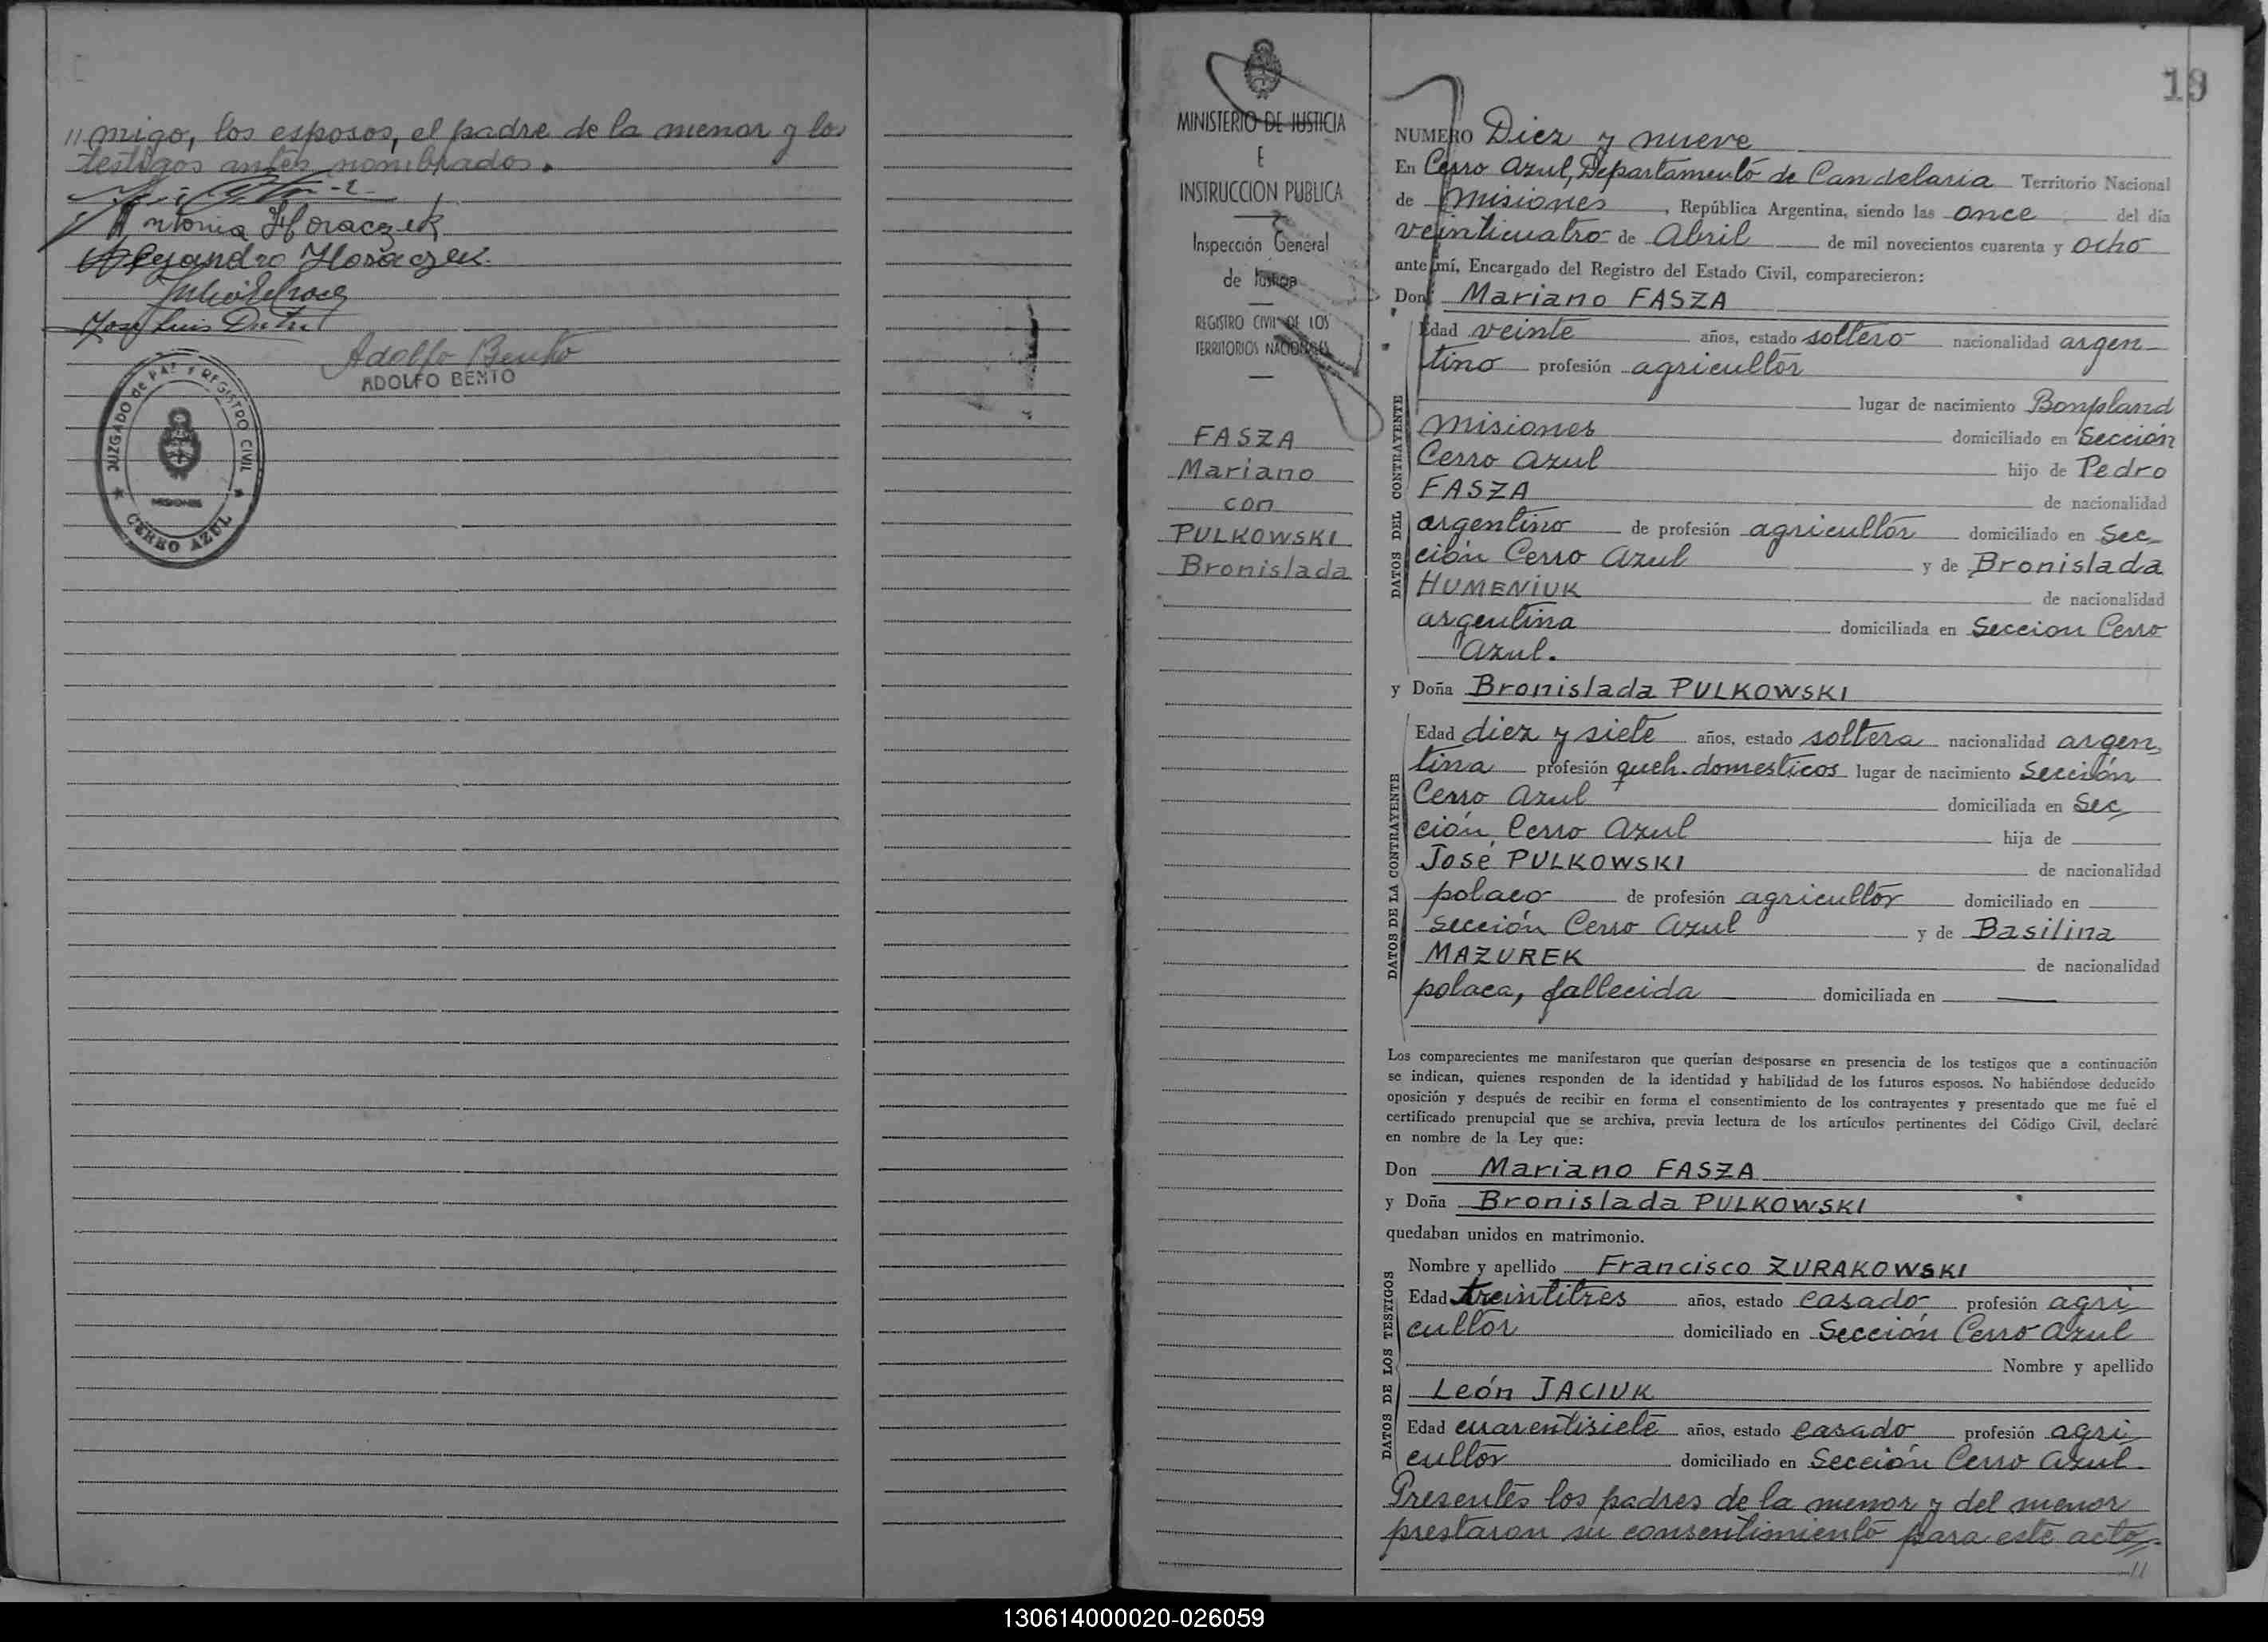 // migo, los esposos, el padre de la menor y los
testigos antes nombrados.
Antonia Horaczek
Alejandro Horaczek
Adolfo Bento
ADOLFO BENTO
JUZGADO de PAZ Y REGISTRO CIVIL
MISIONES
CERRO AZUL
MINISTERIO DE JUSTICIA
E
INSTRUCCION PUBLICA
Inspección General
de Justicia
REGISTRO CIVIL DE LOS
TERRITORIOS NACIONALES
FASZA
Mariano
con
PULKOWSKI
Bronislada
19
NUMERO Diez y nueve
En Cerro Azul, Departamento de Candelaria Territorio Nacional
de Misiones, República Argentina, siendo las once del día
veinticuatro de Abril de mil novecientos cuarenta y ocho
ante mí, Encargado del Registro del Estado Civil, comparecieron:
Don Mariano FASZA
DATOS DEL CONTRAYENTE
Edad veinte años, estado soltero nacionalidad argen-
tino profesión agricultor
lugar de nacimiento Bonpland
Misiones domiciliado en Sección
Cerro Azul hijo de Pedro
FASZA de nacionalidad
argentino de profesión agricultor domiciliado en Sec-
ción Cerro Azul y de Bronislada
HUMENIUK de nacionalidad
argentina domiciliada en Seccion Cerro
Azul.
y Doña Bronislada PULKOWSKI
DATOS DE LA CONTRAYENTE
Edad diez y siete años, estado soltera nacionalidad argen-
tina profesión queh. domesticos lugar de nacimiento Sección
Cerro Azul domiciliada en Sec-
ción Cerro Azul hija de
José PULKOWSKI de nacionalidad
polaco de profesión agricultor domiciliado en
Sección Cerro Azul y de Basilina
MAZUREK de nacionalidad
polaca, fallecida domiciliada en
Los comparecientes me manifestaron que querían desposarse en presencia de los testigos que a continuación
se indican, quienes responden de la identidad y habilidad de los futuros esposos. No habiéndose deducido
oposición y después de recibir en forma el consentimiento de los contrayentes y presentado que me fué el
certificado prenupcial que se archiva, previa lectura de los artículos pertinentes del Código Civil, declaré
en nombre de la Ley que:
Don Mariano FASZA
y Doña Bronislada PULKOWSKI
quedaban unidos en matrimonio.
DATOS DE LOS TESTIGOS
Nombre y apellido Francisco ZURAKOWSKI
Edad treintitres años, estado casado profesión agri
cultor domiciliado en Sección Cerro Azul
Nombre y apellido
León JACIUK
Edad cuarentisiete años, estado casado profesión agri
cultor domiciliado en Sección Cerro Azul.
Presentes los padres de la menor y del menor
prestaron su consentimiento para este acto
//
130614000020-026059